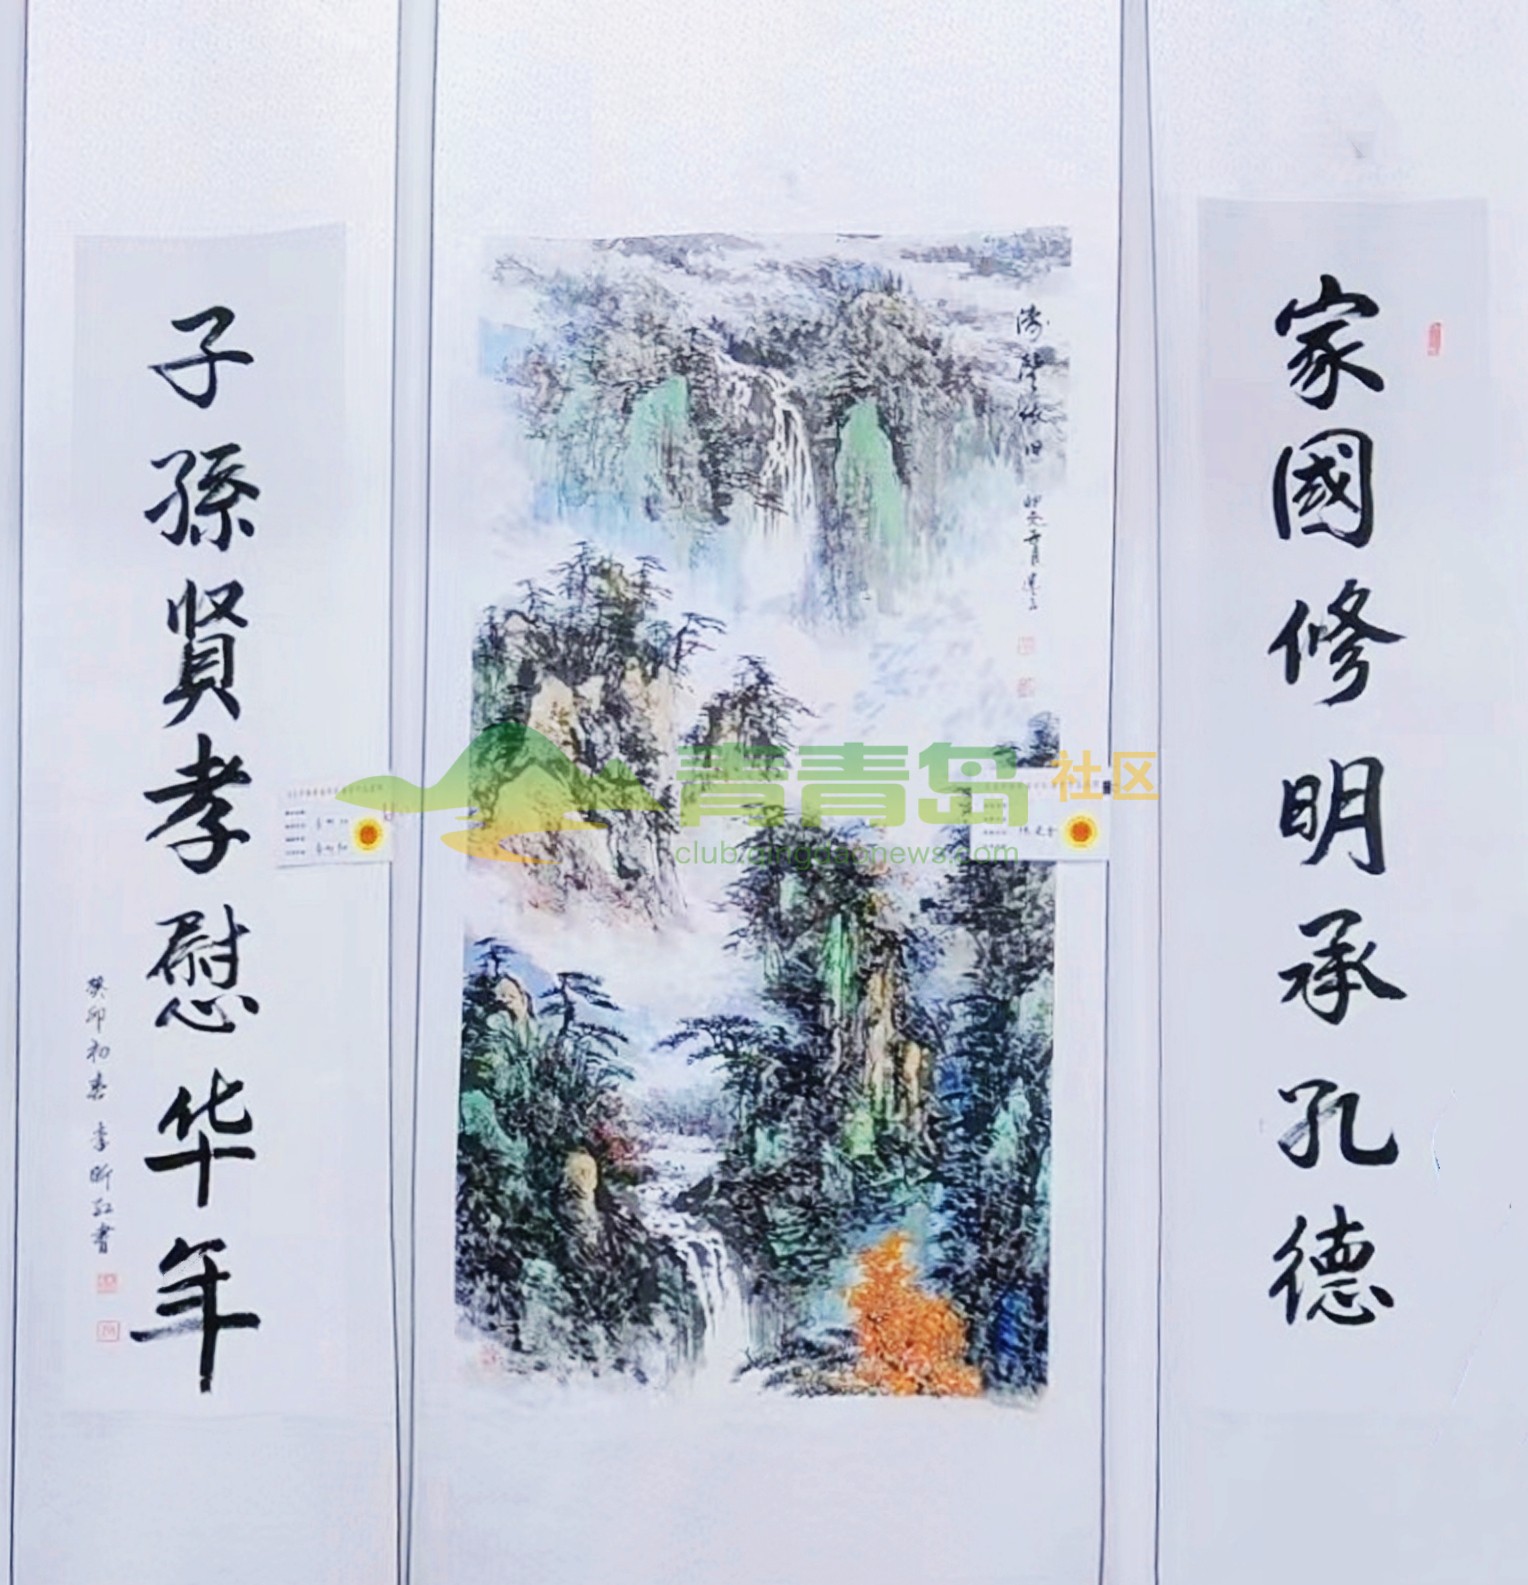 家國修明承孔德
子孫賢孝慰华年
癸卯初春 李昕红書
濤聲依旧
青青岛社区
club.qingdaonews.com